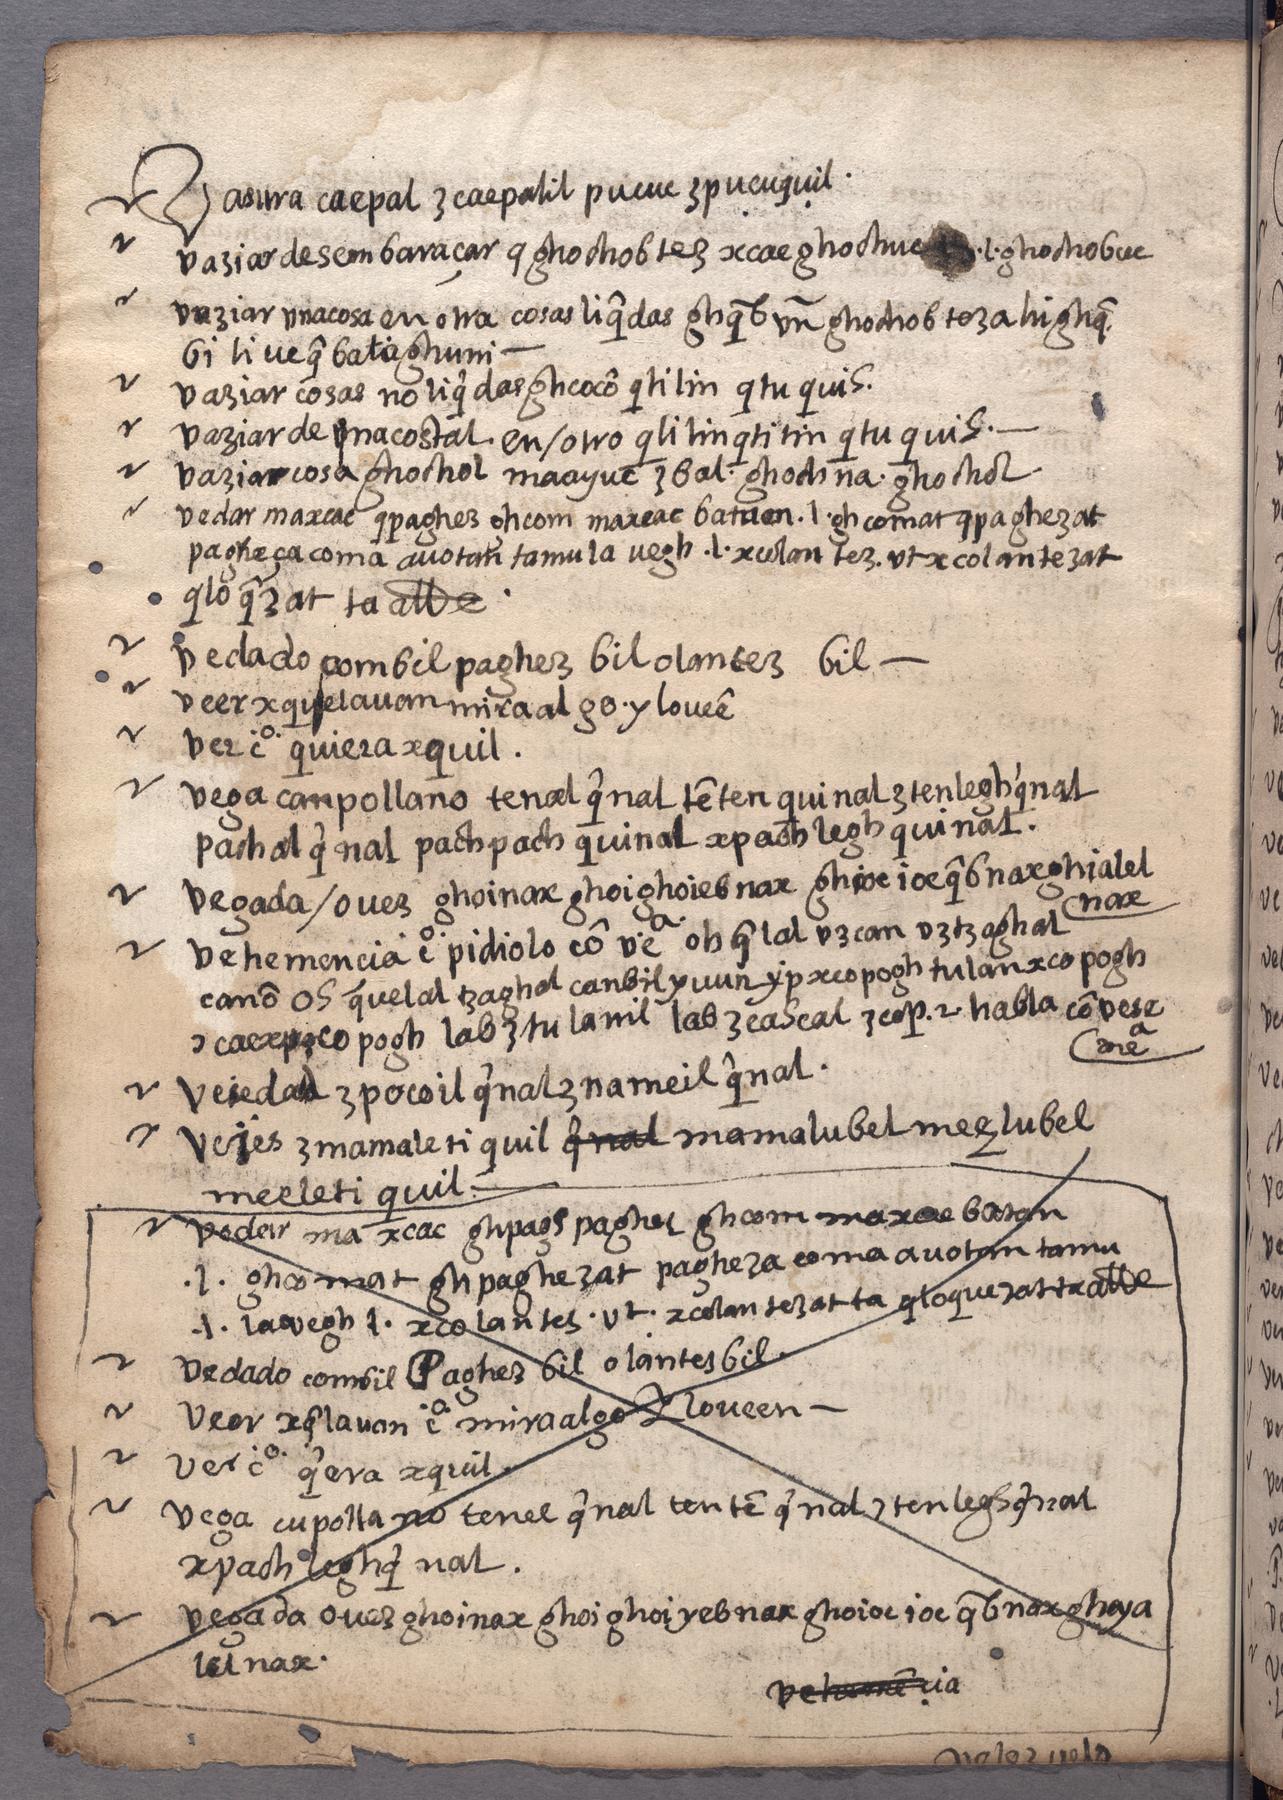 Basura caepal ȝcaepalil pucuc ȝpucuquil.
vaziar desembaraçar q ghochobteȝ xcaeghochuc .l. ghochobuc
vaziar vnacosa en otra cosas liq̃das ghq̃b vñ ghochob teȝa highq̃
bi li ueq̃ bataghuni —
vaziar cosas no liq̃das ghcocô qlilin qtu quiS.
vaziar de vnacostal en/otro qlilin qtitin qtu quiS.—
vaziar cosa ghochol maayuc ȝbal ghochna ghochol
vedar maxcac qpagheȝ ghcom maxcac batuen .l. ghcomat qpagheȝat
pagheça coma auotan tamula uegh .l. xcolan teȝ. vt xcolanteȝat
qlo q̃ȝat ta alle
vedado combil pagheȝ bil olanteȝ bil —
veer xquelauan mira algo y loueê
ver c̊. quiera xquil.
vega campollano tenal q̃nal tẽten quinal ȝtenleghq̃nal
pachal q̃nal pachpach quinal xpachlegh quinal.
vegada/ouez ghoinax ghoighoiebnax ghioc ioc q̃bnax ghialel
nax
vehemencia c̊. pidiolo cô vea. oh q̃lal vȝcan vȝtȝaghal
canô oS quelal tȝaghal canbil yuun yp xcopogh tulan xcopogh
xcopogh lab ȝtulanil lab ȝcaScal ȝcop. 2. habla cô vese
mea
Veiedad ȝpocoil q̃nal ȝnameil q̃nal.
Vejes ȝmamaletiquil q̃nal mamalubel meeȝlubel
meeleti quil —
vedar maxcac ghpagS paghes ghcom maxcac batan
.l. ghcomat ghpagheȝat pagheȝa coma auotan tamu
.l. lauegh l. xcolantes. vt. xcolanteȝat ta qloqueȝat ta alle
vedado combil Pagheȝ bil olantesbil.
Veer xq̃lauan ca mira algo Y loueen —
Ver c̊. q̃era xquil.
vega cãpollano tenel q̃nal ten tẽ q̃nal ȝtenleghq̃nal
xpach leghq̃ nal.
vegada ouez ghoinax ghoi ghoiyebnax ghoioc ioc q̃bnax ghaya
lel nax.
vehemẽcia